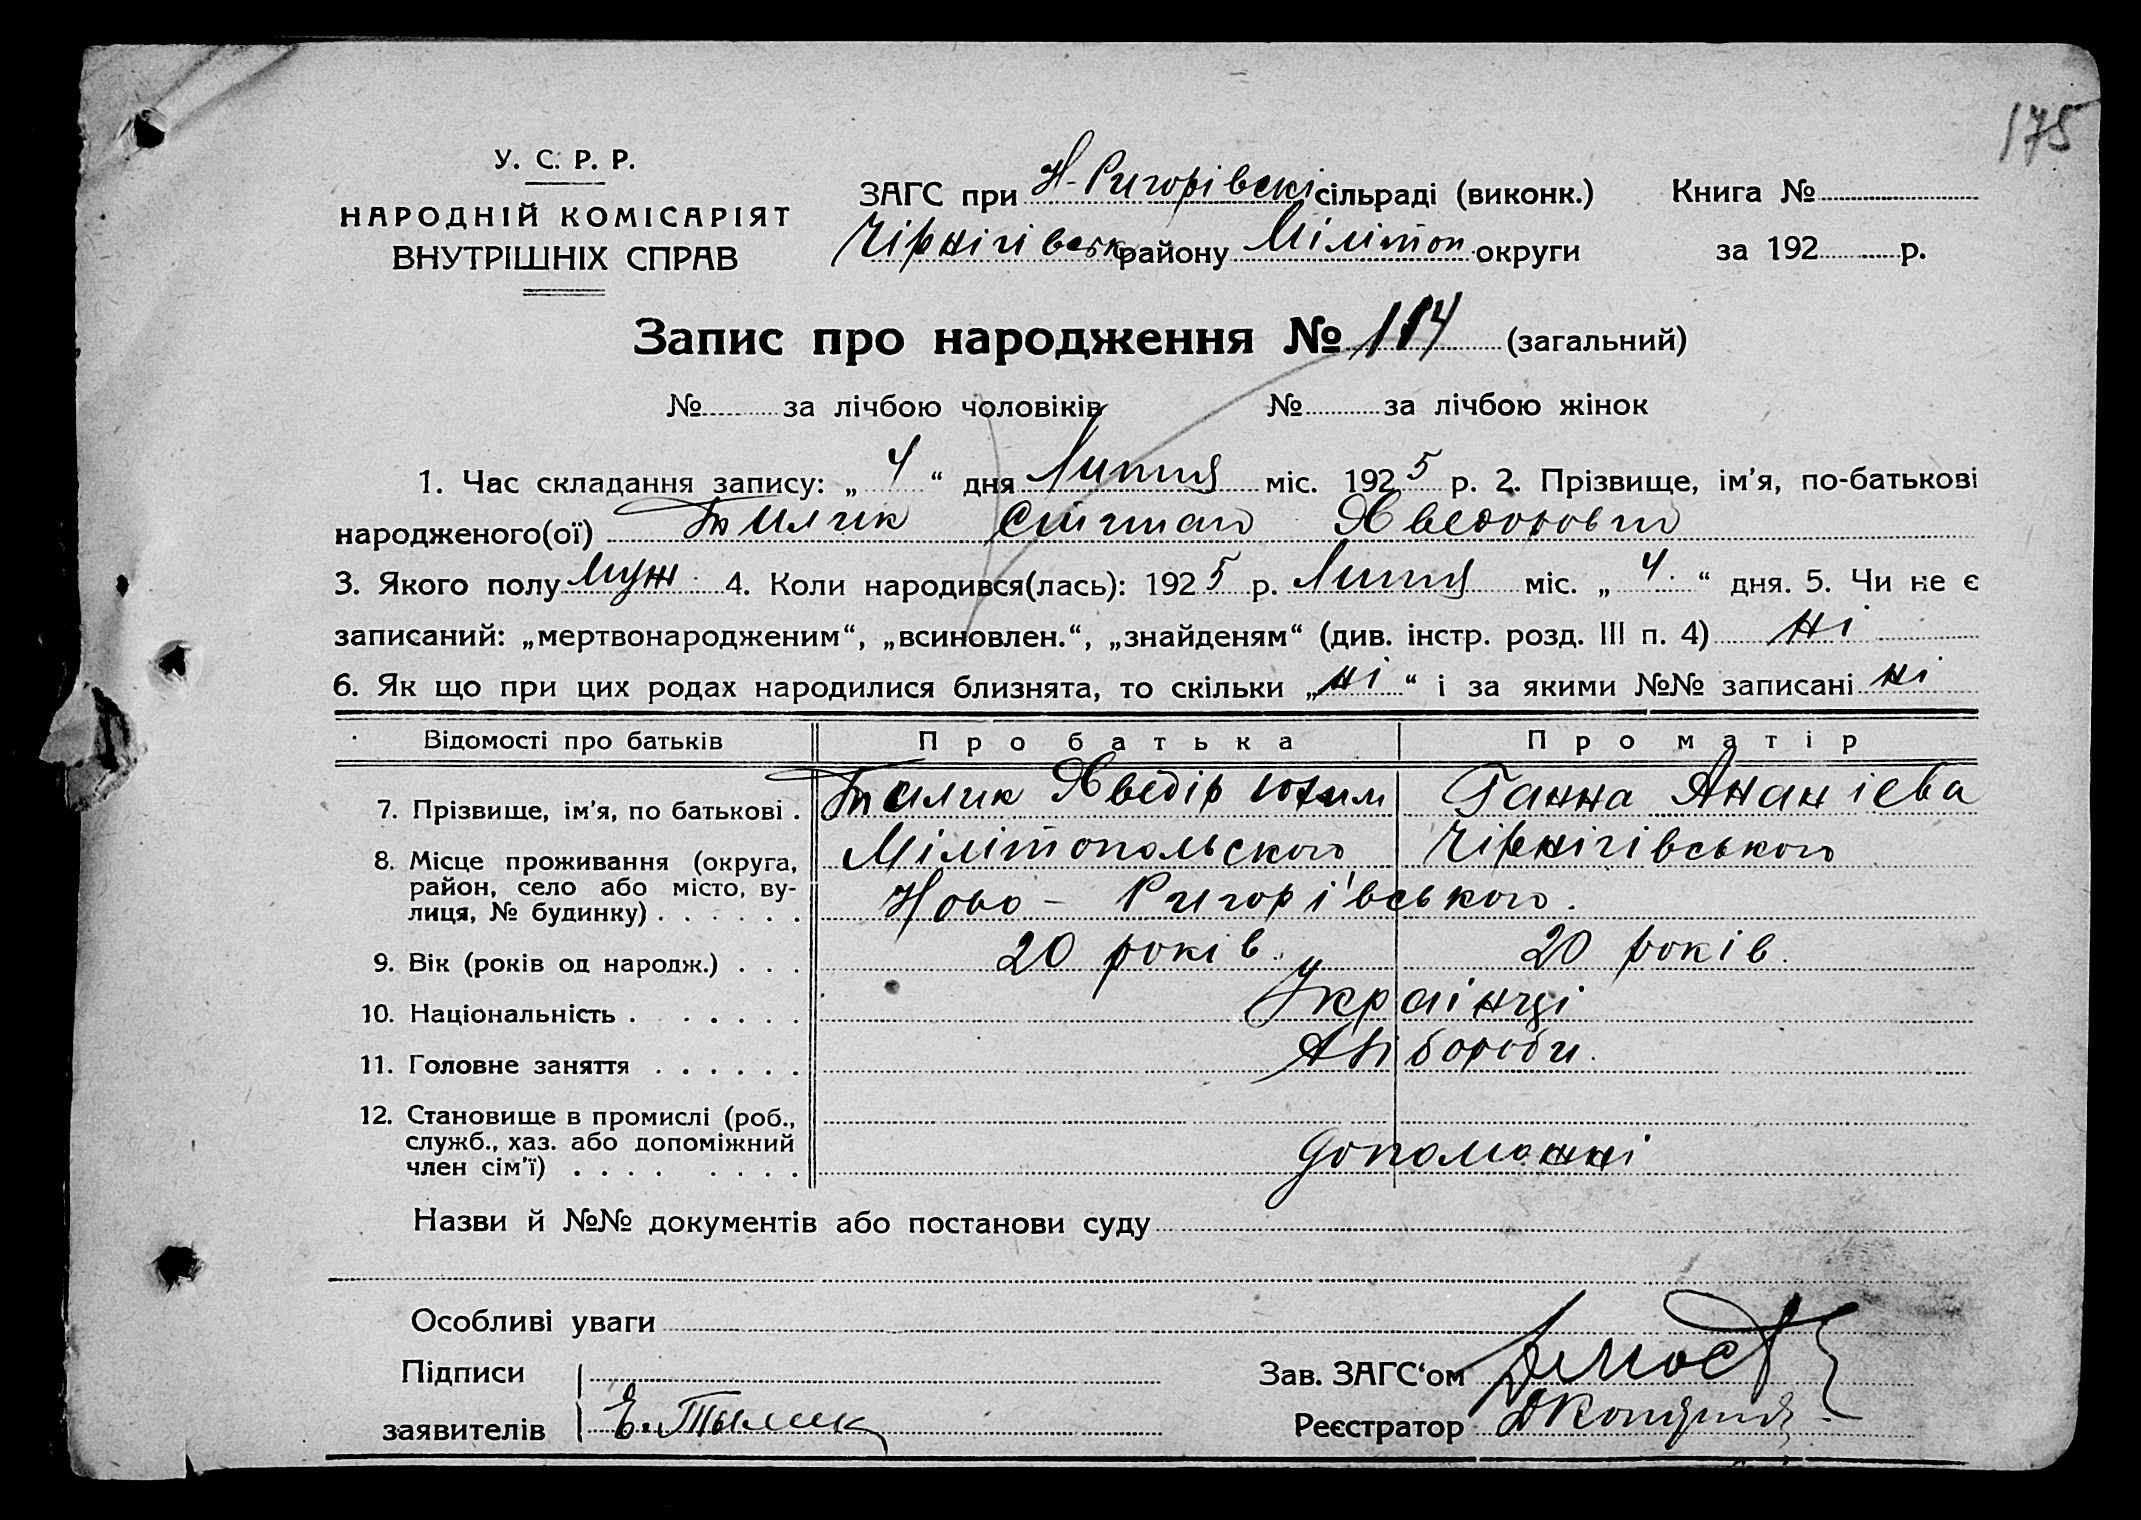 175
У. С. Р. Р.
НАРОДНІЙ КОМІСАРІЯТ
ВНУТРІШНІХ СПРАВ
ЗАГС при Н-Ригорівскі сільраді (виконк.) Книга №
Чірнігівськ району Мілітоп округи за 192 р.
Запис про народження № 114 (загальний)
№ за лічбою чоловіків № за лічбою жінок
1. Час складання запису: „ 4 “ дня Липня міс. 1925 р. 2. Прізвище, ім'я, по-батькові
народженого(ої) Тилик
3. Якого полу Муж 4. Коли народився(лась): 1925 р. Липня міс. „ 4. “ дня. 5. Чи не є
записаний: „мертвонародженим“, „всиновлен.“, „знайденям“ (див. інстр. розд. III п. 4) ні
6. Як що при цих родах народилися близнята, то скільки „ ні “ і за якими №№ записані ні
Відомості про батьків Про батька Про матір
7. Прізвище, ім'я, по батькові . Тилик Явведір Юхим Ганна Ананіева
8. Місце проживання (округа, Мілітопольского Чірнігівського
район, село або місто, ву-
лиця, № будинку) . . . . . . Ново - Ригорівського.
9. Вік (років од народж.) . . . 20 років. 20 років.
10. Національність . . . . . . . Украінці
11. Головне заняття . . . . . . Хліборобы.
12. Становище в промислі (роб.,
служб., хаз. або допоміжний
член сім'ї) . . . . . . . . допоможні
Назви й №№ документів або постанови суду
Особливі уваги
Підписи Зав. ЗАГС‘ом
заявителів Е. Тылик Реєстратор